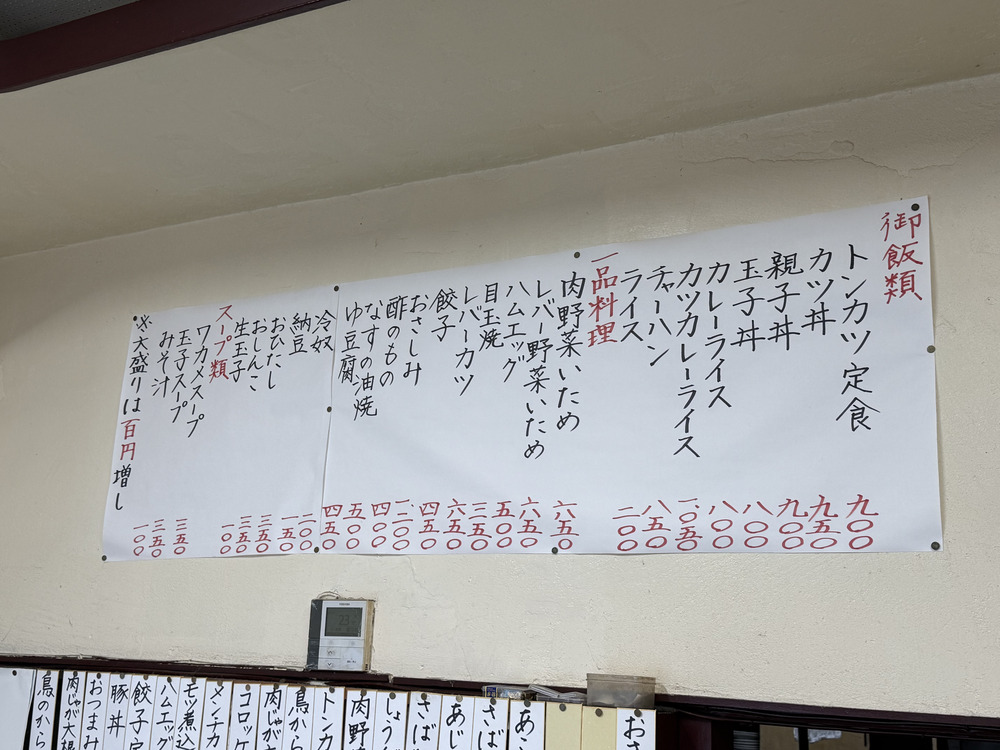 御飯類
トンカツ定食 九〇〇
カツ丼 九五〇
親子丼 九〇〇
玉子丼 八〇〇
カレーライス 八〇〇
カツカレーライス 一〇五〇
チャーハン 八五〇
ライス 二〇〇
一品料理
肉野菜いため 六五〇
レバー野菜いため 六五〇
ハムエッグ 五〇〇
目玉焼 三五〇
レバーカツ 六五〇
餃子 四五〇
おさしみ
酢のもの 四〇〇
なすの油焼 五〇〇
ゆ豆腐 四五〇
冷奴 二〇〇
納豆 一五〇
おひたし 三五〇
おしんこ 三五〇
生玉子 一〇〇
スープ類
ワカメスープ 三五〇
玉子スープ 三五〇
みそ汁 一〇〇
※大盛りは百円増し
おさ
さば
あじ
さば
しょう
肉野
トンカ
鳥から
肉じゃ
コロッケ
メンチカ
モツ煮込
ハムエッグ
餃子定
豚丼
おつまみ
肉じゃが大根
鳥のから